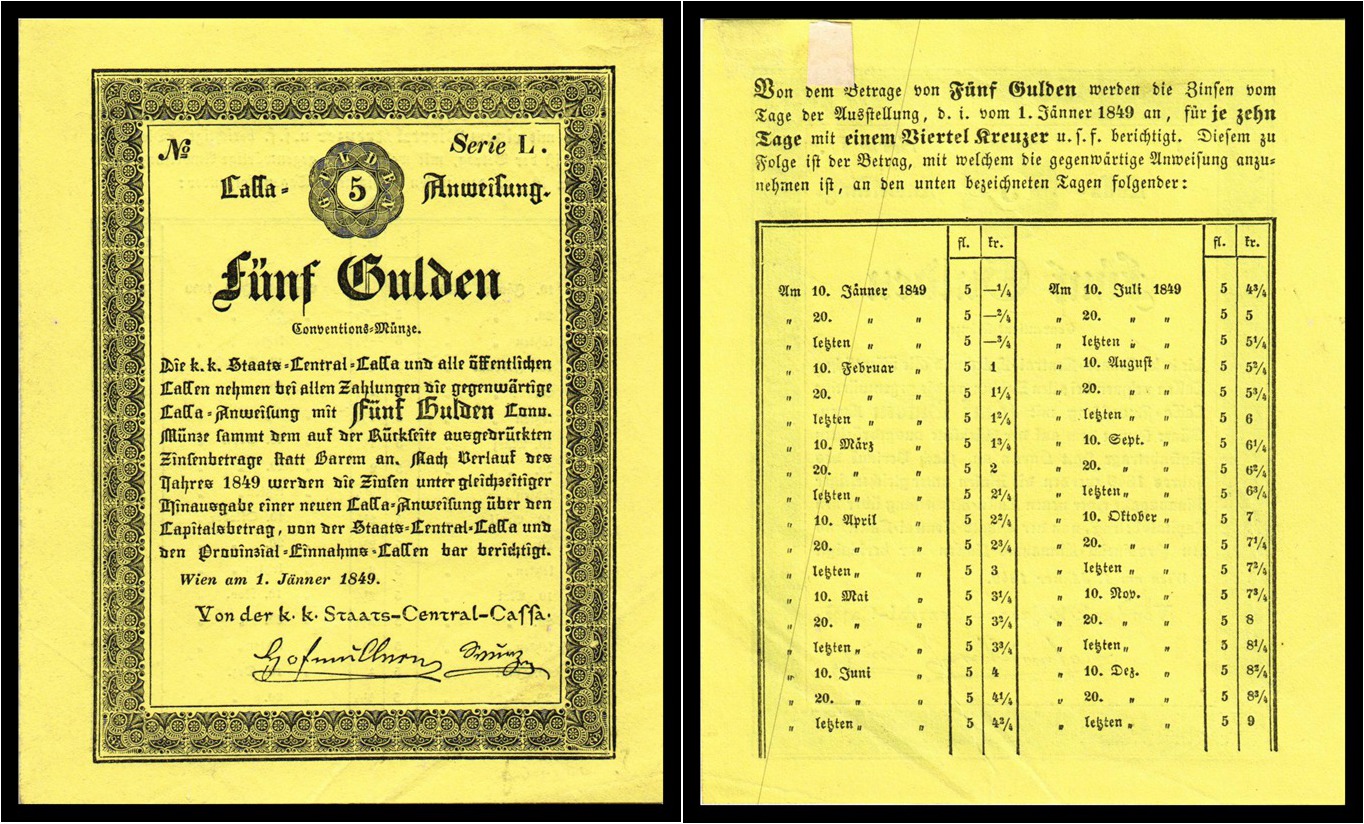 № Serie L.
Cassa-
GULDEN
5
Anweisung.
Fünf Gulden
Conventions-Münze.
Die k. k. Staats-Central-Cassa und alle öffentlichen
Cassen nehmen bei allen Zahlungen die gegenwärtige
Cassa-Anweisung mit Fünf Gulden Conv.
Münze sammt dem auf der Rückseite ausgedrückten
Zinsenbetrage statt Barem an. Nach Verlauf des
Jahres 1849 werden die Zinsen unter gleichzeitiger
Hinausgabe einer neuen Cassa-Anweisung über den
Capitalsbetrag, von der Staats-Central-Cassa und
den Provinzial-Einnahms-Cassen bar berichtigt.
Wien am 1. Jänner 1849.
Von der k. k. Staats-Central-Cassa.
Hofmüllner
Von dem Betrage von Fünf Gulden werden die Zinsen vom
Tage der Ausstellung, d. i. vom 1. Jänner 1849 an, für je zehn
Tage mit einem Viertel Kreuzer u. s. f. berichtigt. Diesem zu
Folge ist der Betrag, mit welchem die gegenwärtige Anweisung anzu-
nehmen ist, an den unten bezeichneten Tagen folgender:
fl. kr. fl. kr.
Am 10. Jänner 1849 5 —1/4 Am 10. Juli 1849 5 4 3/4
„ 20. „ „ 5 —2/4 „ 20. „ „ 5 5
„ letzten „ „ 5 —3/4 „ letzten „ „ 5 5 1/4
„ 10. Februar „ 5 1 „ 10. August „ 5 5 2/4
„ 20. „ „ 5 1 1/4 „ 20. „ „ 5 5 3/4
„ letzten „ „ 5 1 2/4 „ letzten „ „ 5 6
„ 10. März „ 5 1 3/4 „ 10. Sept. „ 5 6 1/4
„ 20. „ „ 5 2 „ 20. „ „ 5 6 2/4
„ letzten „ „ 5 2 1/4 „ letzten „ „ 5 6 3/4
„ 10. April „ 5 2 2/4 „ 10. Oktober „ 5 7
„ 20. „ „ 5 2 3/4 „ 20. „ „ 5 7 1/4
„ letzten „ „ 5 3 „ letzten „ „ 5 7 2/4
„ 10. Mai „ 5 3 1/4 „ 10. Nov. „ 5 7 3/4
„ 20. „ „ 5 3 2/4 „ 20. „ „ 5 8
„ letzten „ „ 5 3 3/4 „ letzten „ „ 5 8 1/4
„ 10. Juni „ 5 4 „ 10. Dez. „ 5 8 2/4
„ 20. „ „ 5 4 1/4 „ 20. „ „ 5 8 3/4
„ letzten „ „ 5 4 2/4 „ letzten „ „ 5 9